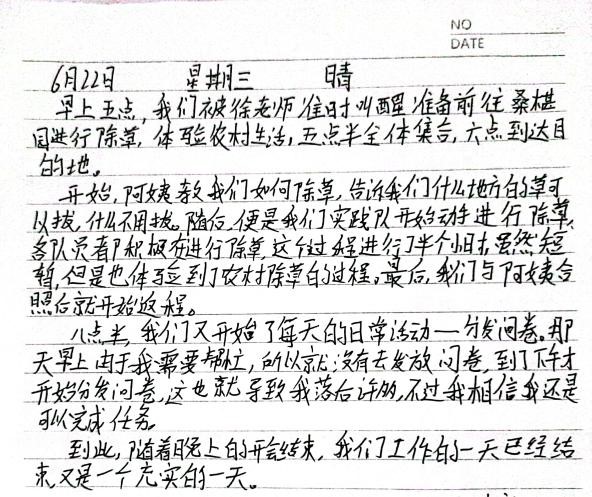 NO
DATE
6月22日 星期三 晴
早上五点，我们被徐老师准时叫醒准备前往桑椹
园进行除草，体验农村生活，五点半全体集合，六点到达目
的地。
开始，阿姨教我们如何除草，告诉我们什么地方的草可
以拔，什么不用拔。随后，便是我们实践队开始动手进行除草，
各队员都积极在进行除草，这个过程进行了半个小时，虽然短
暂，但是也体验到了农村除草的过程。最后，我们与阿姨合
照后就开始返程。
八点半，我们又开始了每天的日常活动—分发问卷。那
天早上由于我需要帮忙，所以就没有去发放问卷，到了下午才
开始分发问卷，这也就导致我落后许多，不过我相信我还是
可以完成任务。
到此，随着晚上的开会结束，我们工作的一天已经结
束，又是一个充实的一天。